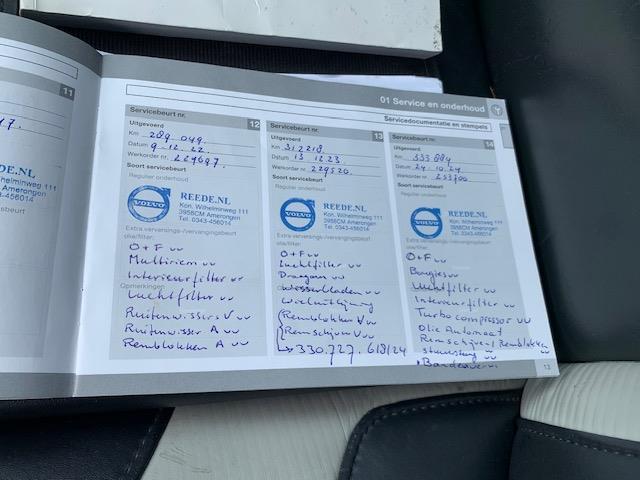 01 Service en onderhoud
Servicedocumentatie en stempels
11
DE.NL
Wilhelminweg 111
Amerongen
43-456014
Servicebeurt nr. 12
Uitgevoerd
Km 289.049.
Datum 9.12.22
Werkorder nr. 224697.
Soort servicebeurt
Regulier onderhoud
VOLVO
REEDE.NL
Kon. Wilhelminweg 111
3958CM Amerongen
Tel. 0343-456014
Extra verversings-/vervangingsbeurt
olie/filter:
O+F vv
Multiriem vv
Interieurfilter vv
Opmerkingen
Luchtfilter vv
Ruitenwissers V vv
Ruitenwisser A vv
Remblokken A vv
Servicebeurt nr. 13
Uitgevoerd
Km 312218.
Datum 13 12.23
Werkorder nr. 229520.
Soort servicebeurt
Regulier onderhoud
VOLVO
REEDE.NL
Kon. Wilhelminweg 111
3958CM Amerongen
Tel. 0343-456014
Extra verversings-/vervangingsbeurt
olie/filter:
O+F vv
Luchtfilter vv
Draagarm vv
Wisserbladen vv
wieluitlijning
Remblokken V vv
Remschijven V vv
330.727. 618/24
Servicebeurt nr. 14
Uitgevoerd
Km 333 884
Datum 24 10.24
Werkorder nr.
Soort servicebeurt
Regulier onderhoud
VOLVO
REEDE.NL
Kon. Wilhelminweg 111
3958CM Amerongen
Tel. 0343-456014
Extra verversings-/vervangingsbeurt
olie/filter:
O+F vv
Bougies vv
Luchtfilter vv
Interieurfilter vv
Turbo compressor vv
Olie Automaat
Remschijven/Remblokken
vv
13